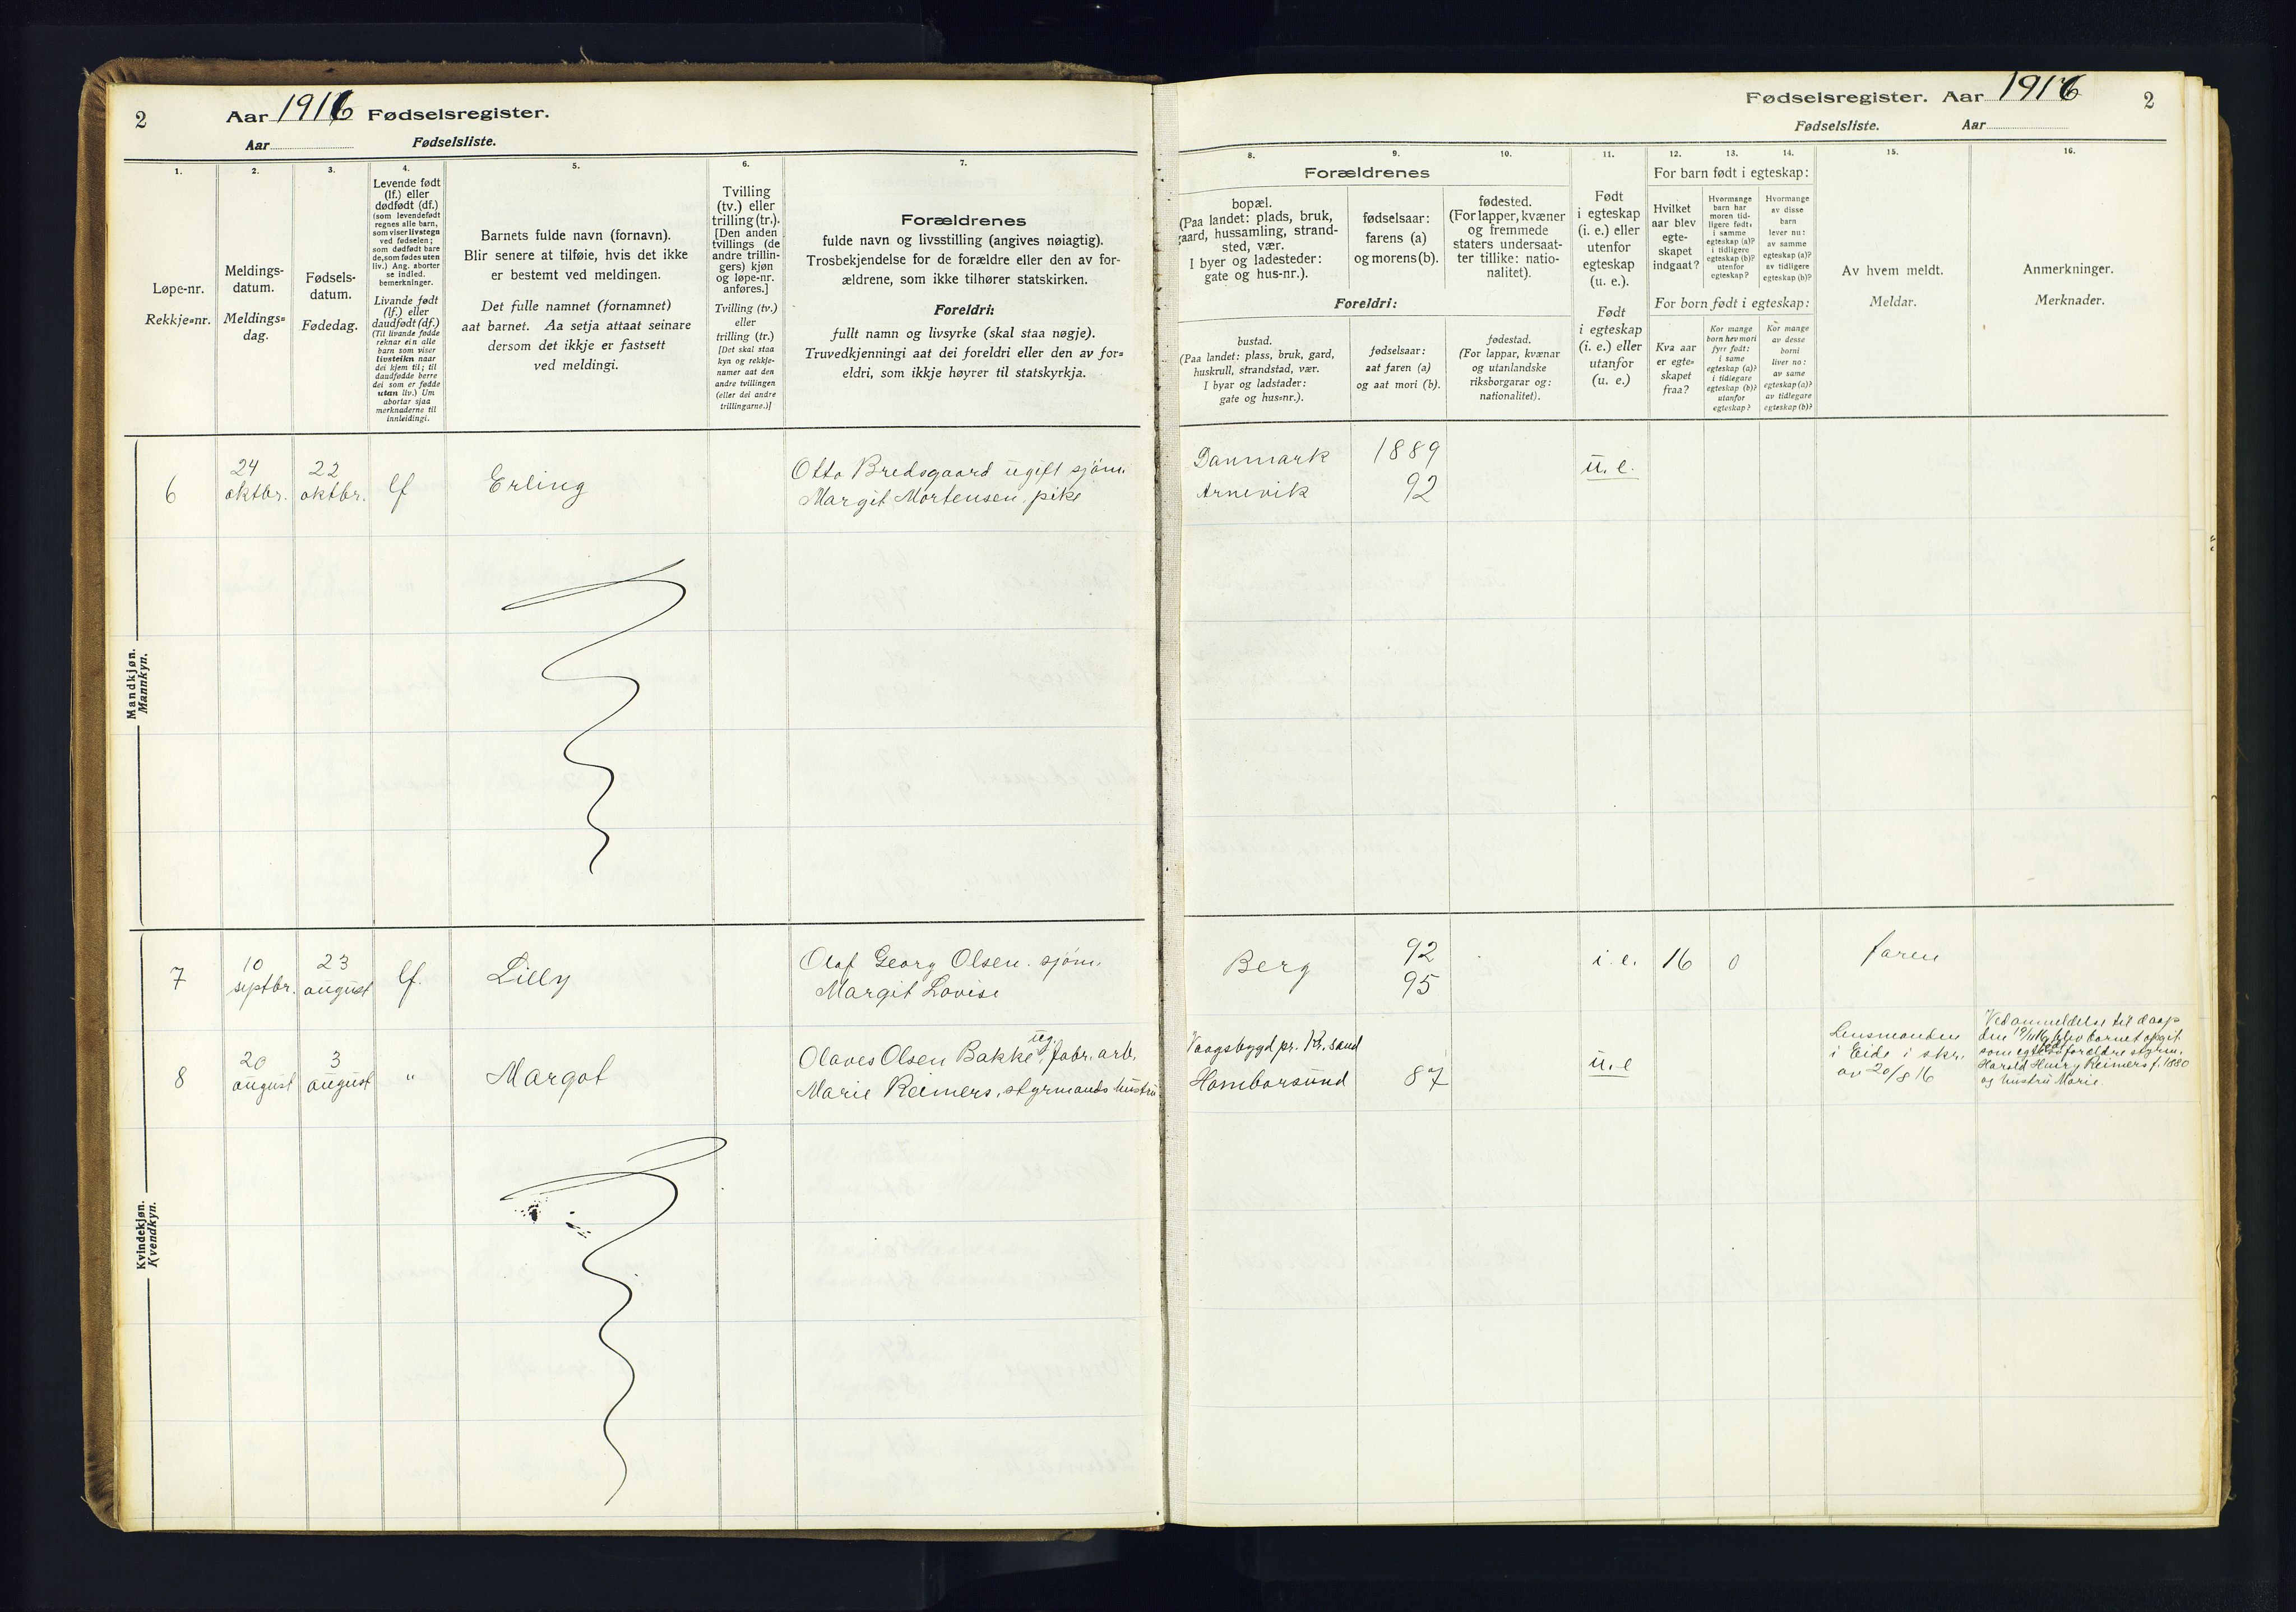 2
Aar 1916 Fødselsregister.
Aar Fødselsliste.
1.
2.
3.
4.
5.
6.
7.
Løpe-nr.
Rekkje=nr.
Meldings-
datum.
Meldings=
dag.
Fødsels-
datum.
Fødedag.
Levende født
(lf.) eller
dødfødt (df.)
(som levendefødt
regnes alle barn,
som viser livstegn
ved fødselen;
som dødfødt bare
de, som fødes uten
liv.) Ang. aborter
se indled.
bemerkninger.
Livande født
(lf.) eller
daudfødt (df.)
(Til livande fødde
reknar ein alle
barn som viser
livsteikn naar
dei kjem til; til
daudfødde berre
dei som er fødde
utan liv.) Um
abortar sjaa
merknaderne til
innleidingi.
Barnets fulde navn (fornavn).
Blir senere at tilføie, hvis det ikke
er bestemt ved meldingen.
Det fulle namnet (fornamnet)
aat barnet. Aa setja attaat seinare
dersom det ikkje er fastsett
ved meldingi.
Tvilling
(tv.) eller
trilling (tr.).
[Den anden
tvillings (de
andre trillin-
gers) kjøn
og løpe-nr.
anføres.]
Tvilling (tv.)
eller
trilling (tr.)
[Det skal staa
kyn og rekkje-
numer aat den
andre tvillingen
(eller dei andre
trillingarne.)]
Forældrenes
fulde navn og livsstilling (angives nøiagtig).
Trosbekjendelse for de forældre eller den av for-
ældrene, som ikke tilhører statskirken.
Foreldri:
fullt namn og livsyrke (skal staa nøgje).
Truvedkjenningi aat dei foreldri eller den av for=
eldri, som ikkje høyrer til statskyrkja.
Mandkjøn.
Mannkyn.
6
24
oktbr.
22
oktbr.
lf
Erling
Otto Bredsgaard ugift sjøm.
Margit Mortensen, pike
Kvindekjøn.
Kvendkyn.
7
10
septbr.
23
august
lf.
Lilly
Olaf Georg Olsen. sjøm.
Margit Lovise
8
20
august
3
august
"
Margot
ug.
Olaves Olsen Bakke, fabr. arb.
Marie Reimers, styrmands hustru
Fødselsregister. Aar 1916
2
Fødselsliste. Aar
8.
9.
10.
11.
12.
13.
14.
15.
16.
Forældrenes
bopæl.
(Paa landet: plads, bruk,
gaard, hussamling, strand-
sted, vær.
I byer og ladesteder:
gate og hus-nr.).
fødselsaar:
farens (a)
og morens (b).
fødested.
(For lapper, kvæner
og fremmede
staters undersaat-
ter tillike: natio-
nalitet).
Foreldri:
bustad.
(Paa landet: plass, bruk, gard,
huskrull, strandstad, vær.
I byar og ladstader:
gate og hus=nr.).
fødselsaar:
aat faren (a)
og aat mori (b).
fødestad.
(For lappar, kvænar
og utanlandske
riksborgarar og:
nationalitet).
Født
i egteskap
(i. e.) eller
utenfor
egteskap
(u. e.).
Født
i egteskap
(i. e.) eller
utanfor
(u. e.)
For barn født i egteskap:
Hvilket
aar blev
egte-
skapet
indgaat?
Hvormange
barn har
moren tid-
ligere født:
i samme
egteskap (a)?
i tidligere
egteskap (b)?
utenfor
egteskap?
Hvormange
av disse
barn
lever nu:
av samme
egteskap (a)?
av tidligere
egteskap (b)?
For born født i egteskap:
Kva aar
er egte=
skapet
fraa?
Kor mange
born hev mori
fyrr født:
i same
egteskap (a)?
i tidlegare
egteskap (b)?
utanfor
egteskap?
Kor mange
av desse
borni
liver no:
av same
egteskap (a)?
av tidlegare
egteskap (b)?
Av hvem meldt.
Meldar.
Anmerkninger.
Merknader.
Danmark
1889
Arnevik
92
u. e.
Berg
92
95
i. e.
16
0
faren
Vaagsbygd pr. Kr.sand
Homborsund
87
u. e
Lensmanden
i Eide i skr.
av 20/8 16
Ved anmeldelse til daap
den 19/11 16 blev barnet opgit
som egtefødt forældre styrm.
Harald Henry Reimers f. 1880
og hustru Marie.